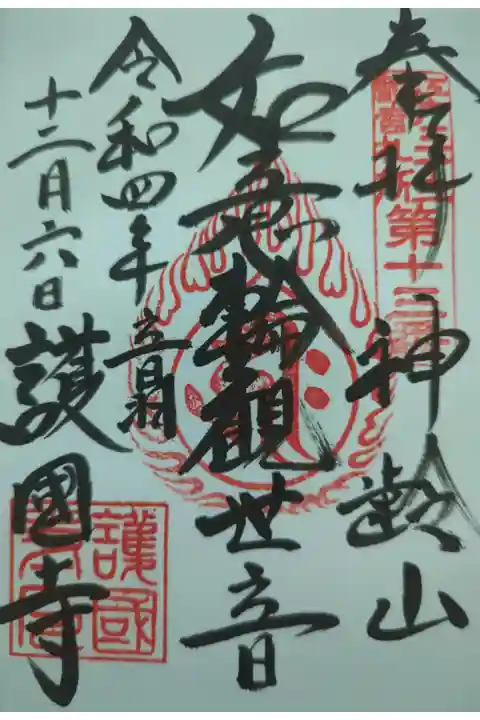 奉拝 神齢山
第十三番
如意輪觀世音
令和四年
十二月六日
音羽
護國寺
護國